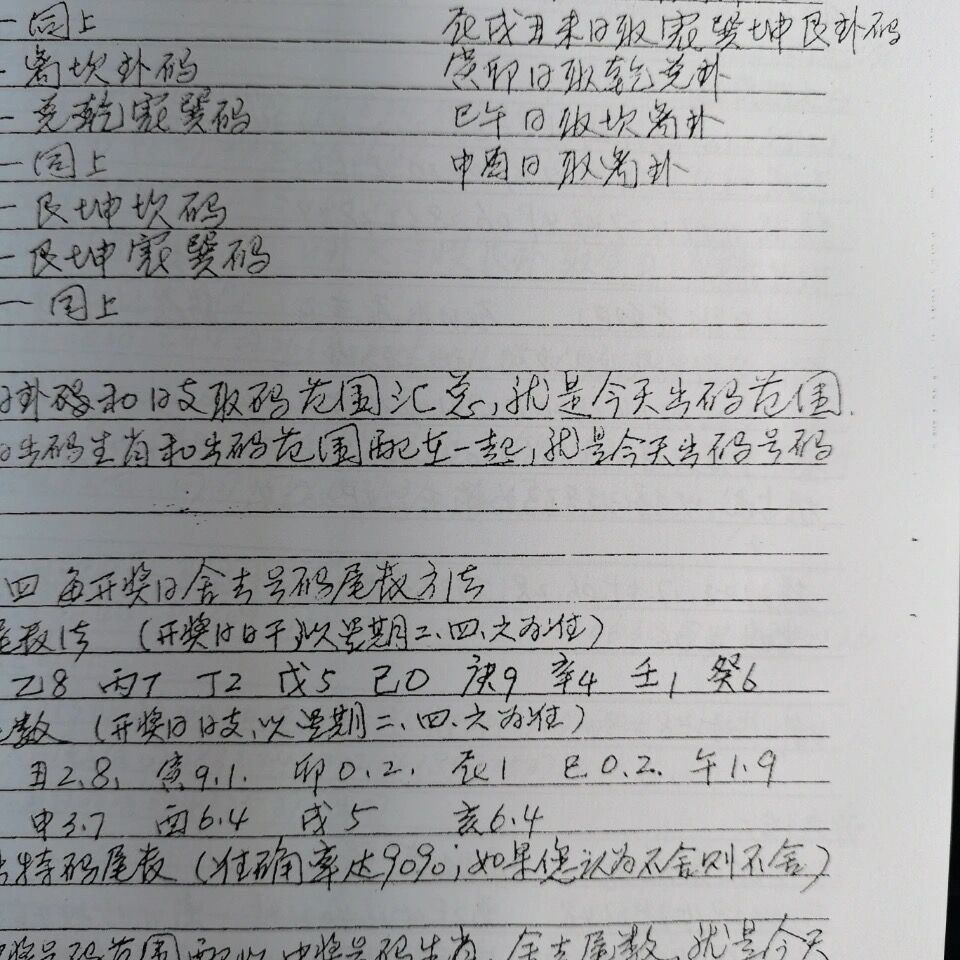 一同上 辰戌丑未日取震巽坤艮卦码
一离坎卦码 寅卯日取乾兑卦
一兑乾震巽码 巳午日取坎离卦
一同上 申酉日取离卦
一艮坤坎码
一艮坤震巽码
一同上
卦码和日支取码范围汇总,就是今天出码范围.
出码生肖和出码范围配在一起,就是今天出码号码
四 每开奖日舍去号码尾数方法
尾数法 (开奖日日干)以星期二、四、六为准)
乙8 丙7 丁2 戊5 己0 庚9 辛4 壬1 癸6
数 (开奖日日支,以星期二、四、六为准)
丑2.8. 寅9.1. 卯0.2. 辰1 巳0.2. 午1.9
申3.7 酉6.4 戌5 亥6.4
特码尾数 (准确率达90%;如果您认为不舍则不舍)
奖号码范围配以中奖号码生肖,舍去尾数,就是今天